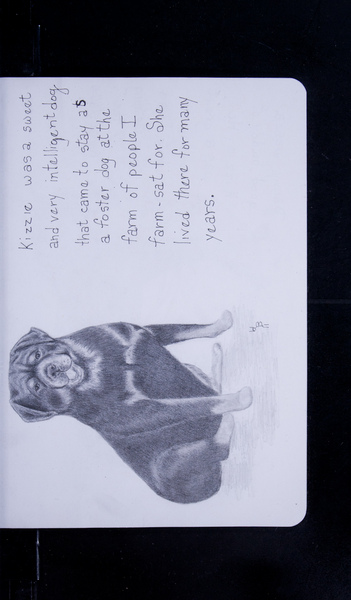 Kizzie was a sweet
and very intelligent dog
that came to stay as
a foster dog at the
farm of people I
farm-sat for. She
lived there for many
years.